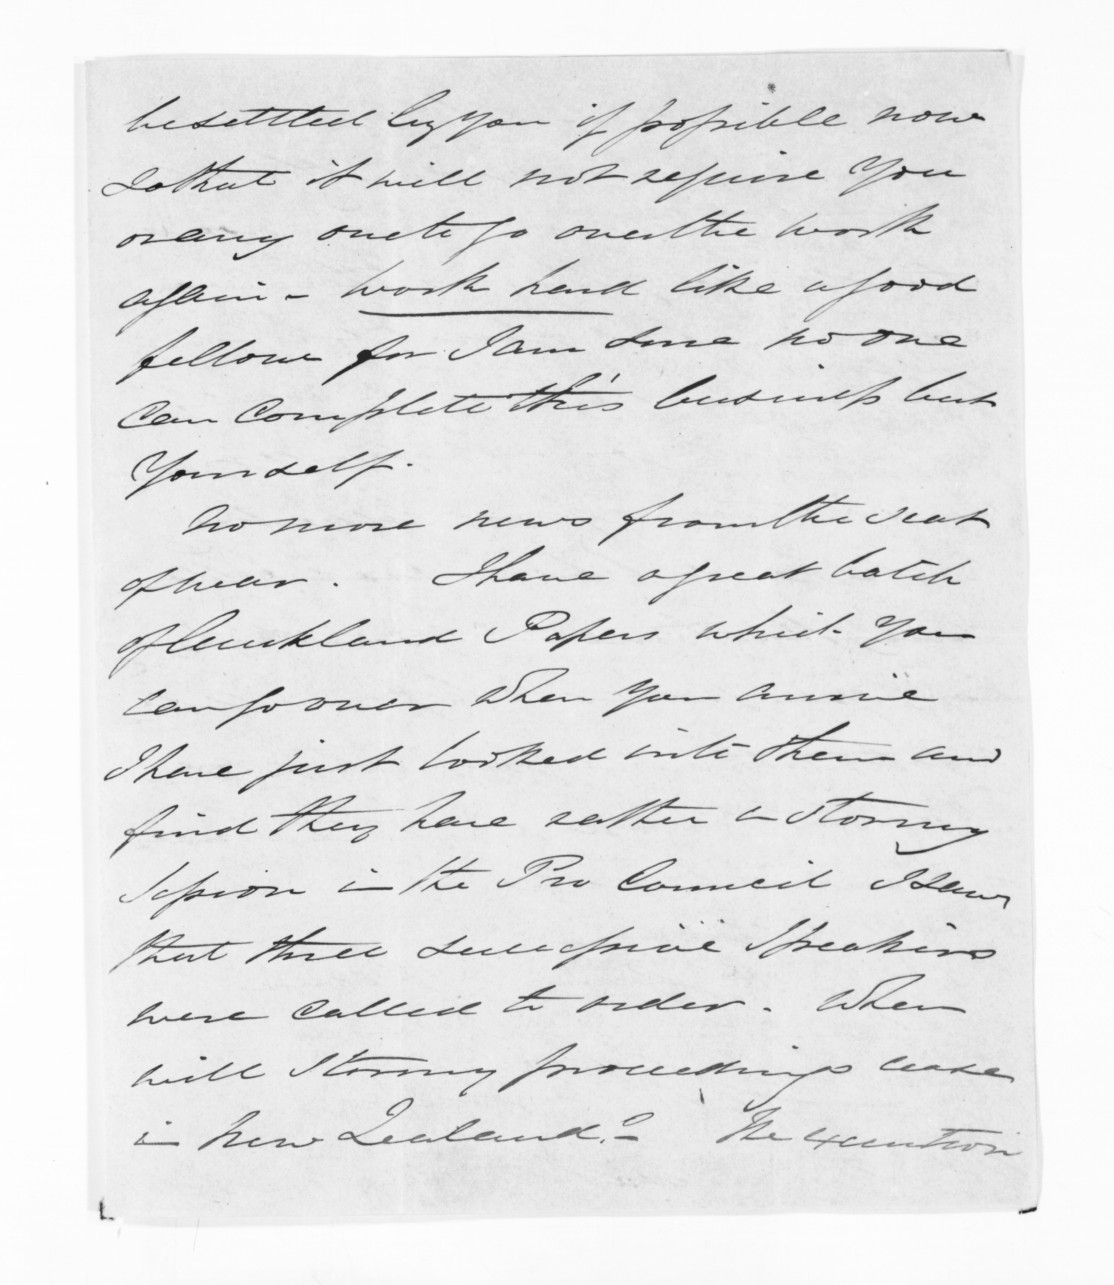 be settled by you if possible now
so that it will not require you
or any one to go over the work
again - work hard like a good
fellow for I am sure no one
can complete this business but
yourself.
No more news from the seat
of war. I have a great batch
of Auckland Papers which you
can go over when you arrive
I have just looked into them and
find they have rather a stormy
session in the Pro Council I saw
that three successive speakers
were called to order. When
will stormy proceedings cease
in New Zealand? - The execution